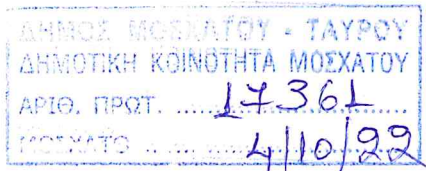 ΔΗΜΟΣ ΜΟΣΧΑΤΟΥ - ΤΑΥΡΟΥ
ΔΗΜΟΤΙΚΗ ΚΟΙΝΟΤΗΤΑ ΜΟΣΧΑΤΟΥ
ΑΡΙΘ. ΠΡΩΤ. ..... 17361
ΜΟΣΧΑΤΟ ..... 4/10/22